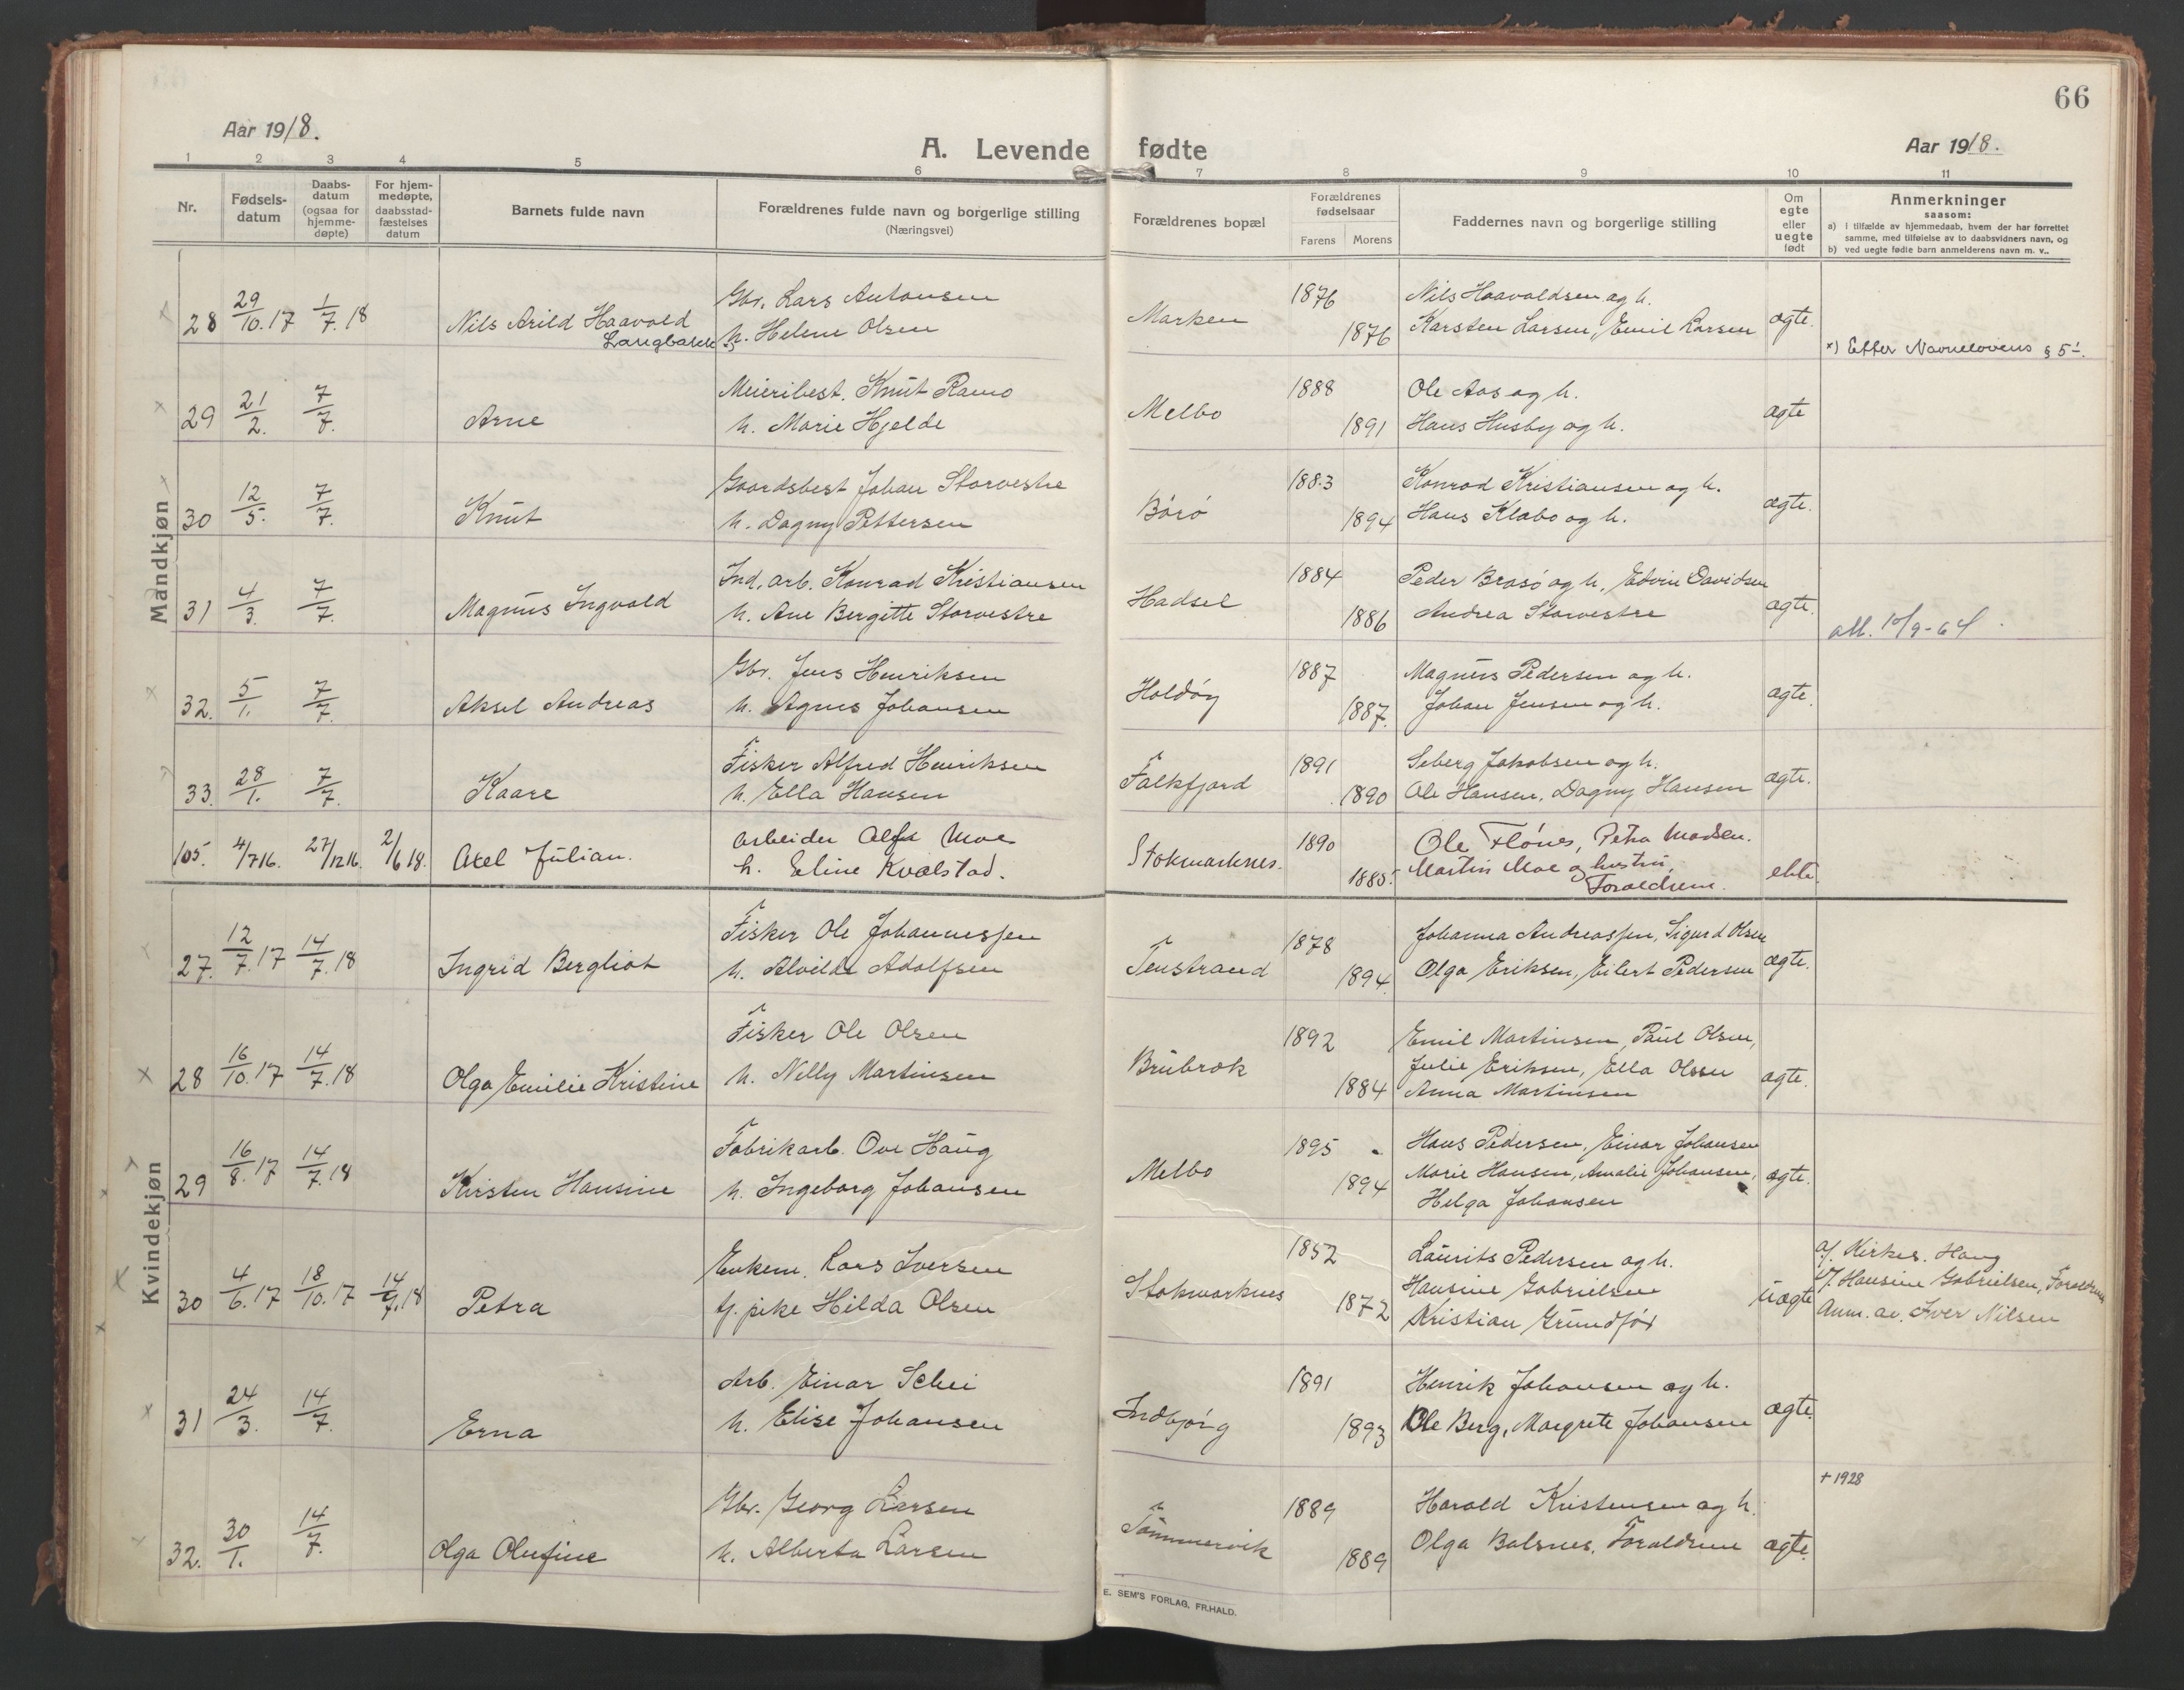 66
Aar 1918.
A. Levende fødte
Aar 1918.
1 2 3 4 5 6 7 8 9 10 11
Nr.
Fødsels-
datum
Daabs-
datum
(ogsaa for
hjemme-
døpte)
For hjem-
medøpte,
daabsstad-
fæstelses
datum
Barnets fulde navn
Forældrenes fulde navn og borgerlige stilling
(Næringsvei)
Forældrenes bopæl
Forældrenes
fødselsaar
Farens Morens
Faddernes navn og borgerlige stilling
Om
egte
eller
uegte
født
Anmerkninger
saasom:
a) i tilfælde av hjemmedaab, hvem der har forrettet
samme, med tilføielse av to daabsvidners navn, og
b) ved uegte fødte barn anmelderens navn m. v..
Mandkjøn
28 29/10.17 1/7.18 Nils Arild Haavold
Langbakk
Gbr. Lars Antonsen
h. Helene Olsen
Marken 1876 1876
Nils Haavoldsen og h.
Karsten Larsen, Emil Larsen
ægte.
x) Efter Navnelovens § 5-.
29 21/2. 7/7. Arne
Meieribest. Knut Ramo
h. Marie Hjelde
Melbo 1888 1891
Ole Aas og h.
Hans Husby og h.
ægte
30 12/5. 7/7. Knut
Gaardsbest Johan Storvestre
h. Dagny Pettersen
Börö 1883 1894
Konrad Kristiansen og h.
Hans Klabo og h.
ægte.
31 4/3. 7/7. Magnus Ingvald
Ind. arb. Konrad Kristiansen
h. Ane Bergitte Storvestre
Hadsel 1884 1886
Peder Brasö og h., Edvin Davidsen
Andrea Storvestre
ægte.
att. 10/9-64
32. 5/1. 7/7. Aksel Andreas
Gbr. Jens Henriksen
h. Agnes Johansen
Holdöy 1887 1887.
Magnus Pedersen og h.
Johan Jensen og h.
ægte.
33. 28/1. 7/7. Kaare
Fisker Alfred Henriksen
h. Ella Hansen
Falkfjord 1891 1890
Seberg Jakobsen og h.
Ole Hansen, Dagny Hansen
ægte.
105. 4/716. 27/1216. 2/618. Axel Julian.
Arbeider Alf Moe
h. Eline Kvalstad.
Stokmarknes. 1890 1885.
Ole Flönes, Petra Madsen.
Martin Moe og hustru,
Foraldrene.
ekte.
Kvindekjøn
27. 12/7.17 14/7.18 Ingrid Bergliot
Fisker Ole Johannessen
h. Alvilde Adolfsen
Tenstrand 1878 1894.
Johanna Andreassen, Sigurd Olsen
Olga Eriksen, Eilert Pedersen
ægte.
28 16/10.17 14/7.18 Olga Emilie Kristine
Fisker Ole Olsen
h. Nelly Martinsen
Brubrok 1892 1884
Emil Martinsen, Paul Olsen,
Julie Eriksen, Ella Olsen
Anna Martinsen
ægte.
29 16/8.17 14/7.18 Kirsten Hansine
Fabrikarb. Ove Haug
h. Ingeborg Johansen
Melbo 1895 1894
Hans Pedersen, Einar Johansen
Marie Hansen, Amalie Johansen,
Helga Johansen
ægte.
30 4/6.17 18/10.17 14/7.18 Petra
Enkem. Lars Iversen
tj. pike Hilda Olsen
Stokmarknes 1852 1872
Laurits Pedersen og h.
Hansine Gabrielsen
Kristian Grundför
uægte
a/. Kirkes. Haug
Hansine Gabrielsen, Foraldrene
Anm. av. Iver Nilsen
31 24/3. 14/7. Erna
Arb. Einar Schei
h. Elise Johansen
Indbjörg 1891 1893
Henrik Johansen og h.
Ole Berg, Margrete Johansen
ægte.
32. 30/1. 14/7. Olga Olufine
Gbr. Georg Larsen
h. Alberta Larsen
Tömmervik 1889 1889
Harald Kristensen og h.
Olga Balsnes. Foraldrene
ægte.
+ 1928
E. SEM'S FORLAG, FR.HALD.